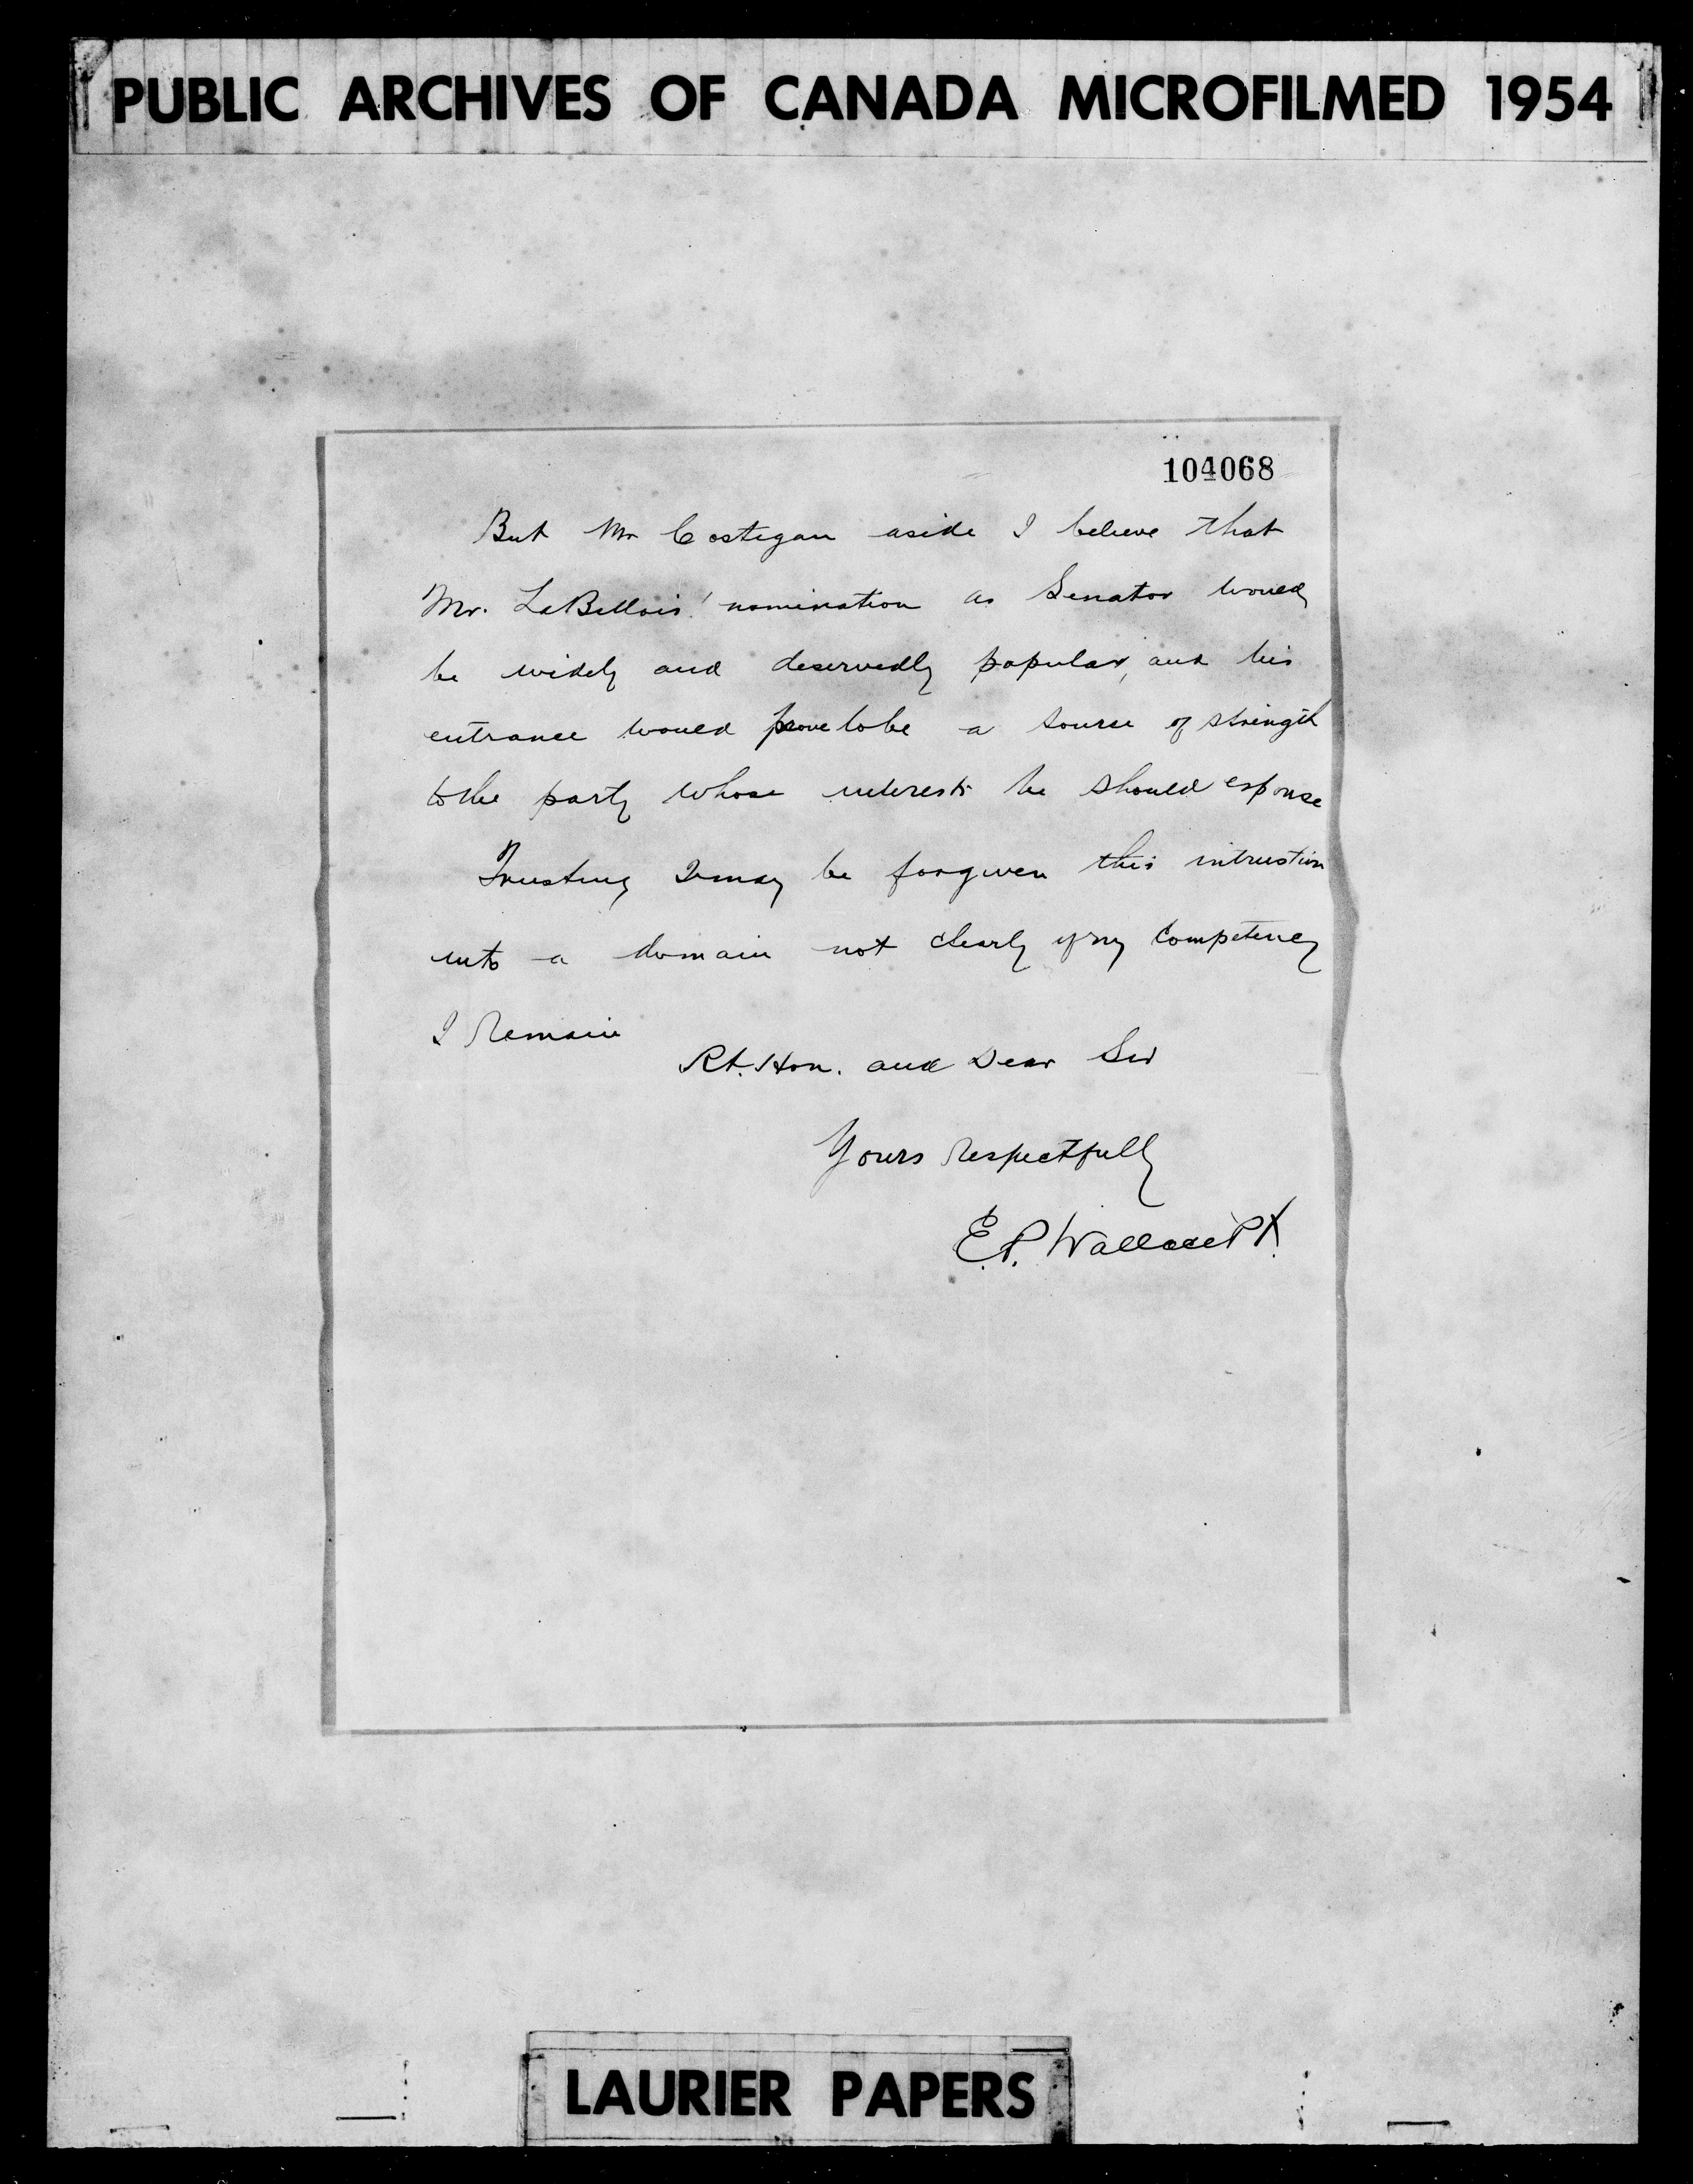 PUBLIC ARCHIVES OF CANADA MICROFILMED 1954
104068
But Mr Costigan aside I believe that
Mr. LaBillois' nomination as Senator would
be widely and deservedly popular, and his
entrance would prove to be a source of strength
to the party whose interests he should espouse
Trusting I may be forgiven this intrustion
into a domain not clearly of my competency
I Remain
Rt. Hon. and Dear Sir
Yours Respectfully
E.P. Wallace Pt.
LAURIER PAPERS